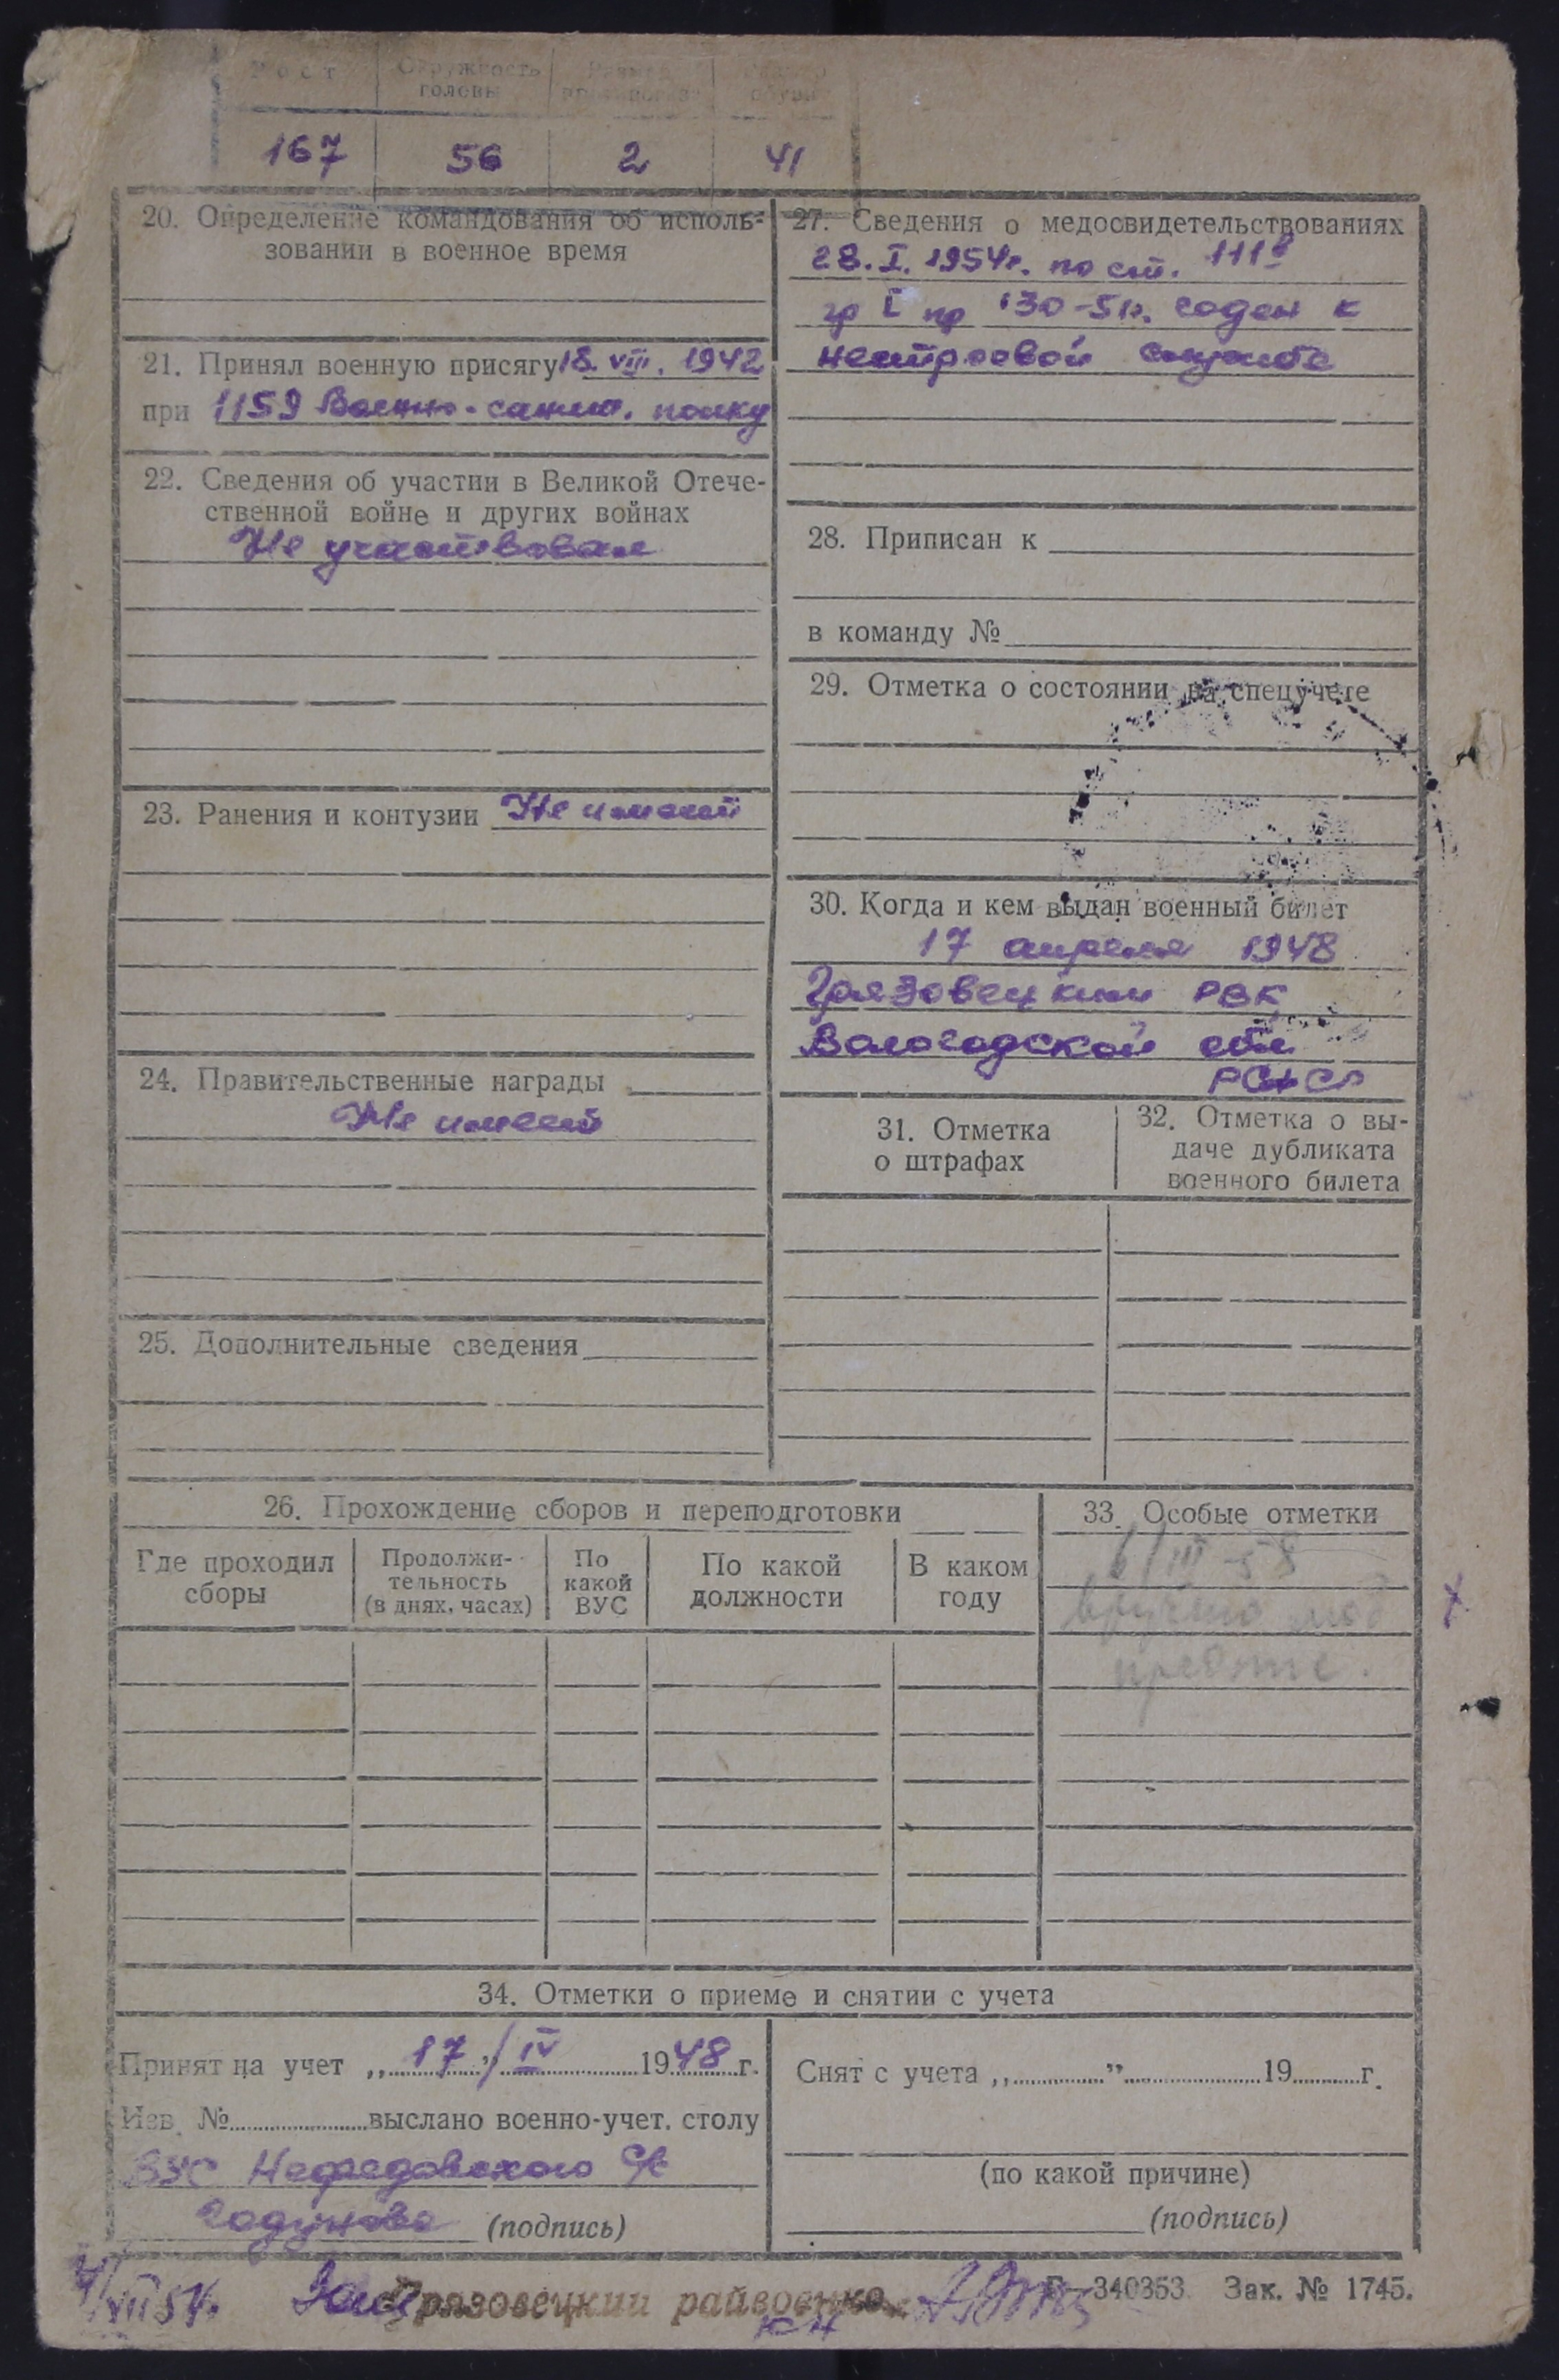 Рост Окружность головы Размер Размер обуви
167 56 2 41
20. Определение командования об исполь-
зовании в военное время
21. Принял военную присягу 18. VIII. 1942
при 1159 Военно-санит. полку
22. Сведения об участии в Великой Отече-
ственной войне и других войнах
Не участвовал
23. Ранения и контузии Не имеет
24. Правительственные награды
Не имеет
25. Дополнительные сведения
27. Сведения о медосвидетельствованиях
28. I. 1954г. по ст. 111
гр I пр 130-51г. годен к
нестроевой службе
28. Приписан к
в команду №
29. Отметка о состоянии на спецучете
30. Когда и кем выдан военный билет
17 апреля 1948
Грязовецким РВК
Вологодской обл
РСФСР
31. Отметка
о штрафах
32. Отметка о вы-
даче дубликата
военного билета
26. Прохождение сборов и переподготовки
Где проходил
сборы
Продолжи-
тельность
(в днях, часах)
По
какой
ВУС
По какой
должности
В каком
году
33. Особые отметки
6/III-58
вручено моб
предпис.
34. Отметки о приеме и снятии с учета
Принят на учет „17"/IV 1948 г.
Изв. № выслано военно-учет. столу
ВУС Нефедовского с/с
Годунова (подпись)
Снят с учета „ " 19 г.
(по какой причине)
(подпись)
Грязовецкий райвоенко
Г—340353 Зак. № 1745.